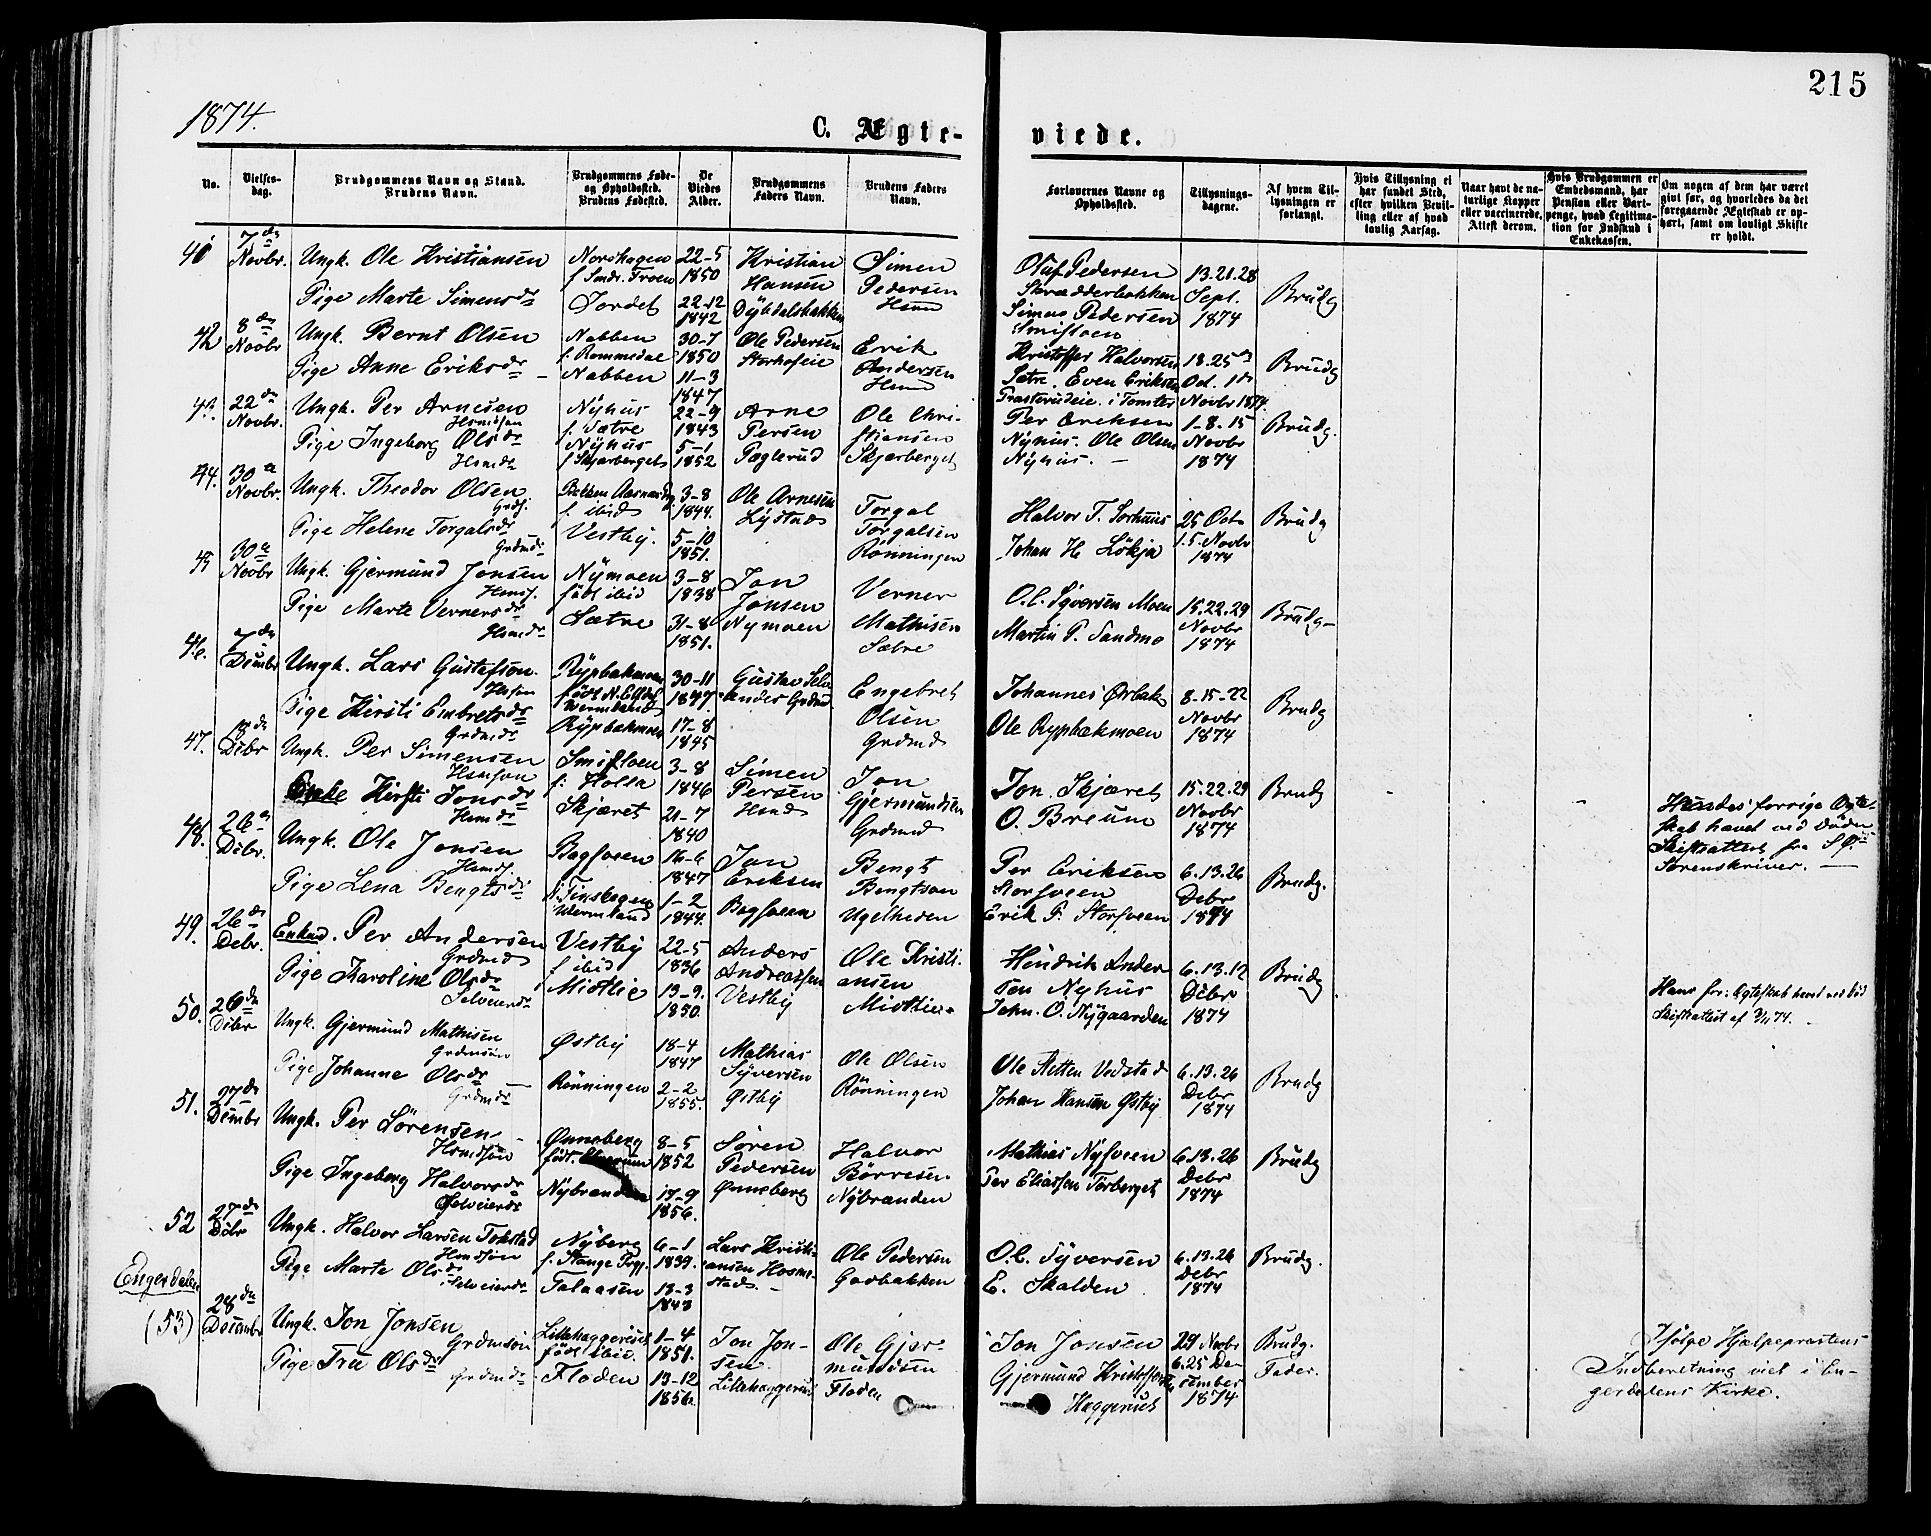 215
1874.
C. Ægte-
viede.
No.
Vielses-
dag.
Brudgommens Navn og Stand.
Brudens Navn.
Brudgommens Føde-
og Opholdssted.
Brudens Fødested.
De
Viedes
Alder.
Brudgommens
Faders Navn.
Brudens Faders
Navn.
Forlovernes Navne og
Opholdssted.
Tillysnings-
dagene.
Af hvem Til-
lysningen er
forlangt.
Hvis Tillysning ei
har fundet Sted,
efter hvilken Bevil-
ling eller af hvad
lovlig Aarsag.
Naar havt de na-
turlige Kopper
eller vaccinerede,
Attest derom.
Hvis Brudgommen er
Embedsmand, har
Pension eller Vart-
penge, hvad Legitima-
tion for Indskud i
Enkekassen.
Om nogen af dem har været
givt før, og hvorledes da det
foregaaende Ægteskab er op-
hørt, samt om lovligt Skifte
er holdt.
41
7de
Novbr.
Ungk. Ole Kristiansen
Pige Marte Simensdr
Norskogen
f Sndr. Troen
Jordet
22-5
1850
22-12
1842
Kristian
Hansen
Dybdalsbakken
Simen
Pedersen
Hsmd
Oluf Pedersen
Skrædderbakken
Simen Pedersen
Smistoen
13.21.28
Sept.
1874
Brudg
42
8de
Novbr
Ungk. Bernt Olsen
Pige Anne Eriksdr
Nabben
f. Rommedal
Nabben
30-7
1850
11-3
1847
Ole Pedersen
Storhofeie
Erik
Andersen
Hsmd
Kristoffer Halvorsen
Sætre. Even Eriksen
Præsterudeie i Tomter
18.25
Oct. 1de
Novbr 1874
Brudg
43.
22de
Novbr.
Ungk. Per Arnesen
Hsmdsøn
Pige Ingeborg Olsdr
Hsmdr
Nyhus
f. Sætre
Nyhus
f Skjærberget
22-9
1843
5-1
1852
Arne
Persen
Pæglerud
Ole Chri-
stiansen
Skjærberget
Per Eriksen
Nyhus. Ole Olsen
Nyhus.
1-8-15
Novbr
1874
Brudg.
44.
30te
Novbr.
Ungk. Theodor Olsen
Grds.
Pige Helene Torgalsdr
Grdmdr
f. ibid
Vestby.
3-8
1844.
5-10
1851.
Ole Arnesen
Lystad
Torgal
Torgalsen
Rønningen
Halvor T. Sorhuus
Johan H. Løkja
25 Oct
1.5. Novbr
1874
Brudg
45
30te
Novbr
Ungk. Gjermund Jonsen
Hsmds.
Pige Marte Vernersdr
Hsmdr
Nymoen
født ibid
Sætre
3-8
1838
31-8
1851.
Jon
Jonsen
Nymoen
Verner
Mathisen
Sætre
O.C. Syversen Moen
Martin P. Sandmo
15.22.29
Novbr
1874
Brudg-
46.
7de
Dcmbr
Ungk. Lars Gustafson.
Hsmsøn
Pige Kirsti Embretsdr
Grdmdr
Rypbakmoen
født N. Elfdal
Wermland
Rypbakmoen
30-11
1847
17-8
1845
Gustav Selv-
ander Grdmd
Engebret
Olsen
Grdmd
Johannes Ørbak
Ole Rypbakmoen
8-15-22
Novbr
1874
Brudg
47.
18de
Dcbr
Ungk. Per Simensen
Hsmsøn
Enke Kirsti Jonsdr
Hsmdr
Smistoen
f. Holla
Skjæret
3-8
1846
21-7
1840
Simen
Persen
Hsmd
Jon
Gjermundsen
Grdmd
Jon Skjæret
O. Breum
15.22.29
Novbr
1874
Brudg
Hendes forrige Ægte-
skab hævet ved Døden
Skifteattest fra S Ø.
Sorenskriver.
48.
26de
Dcbr.
Ungk. Ole Jonsen
Hsmds.
Pige Lena Bengtsdr
Bagsveen
N. Finskogen
Wermland
16-6
1847
1-2
1844.
Jon
Eriksen
Bagsveen
Bengt
Bengtson
Ugelheden
Per Eriksen
Storsveen
Erik P. Storsveen
6.13.26
Debr
1874
Brudg.
49.
26de
Debr.
Enkmd. Per Andersen
Grdmd
Pige Karoline Olsdr
Selveierdr
Vestby
f ibid
Midtlie
22-5
1836
13-9.
1850.
Anders
Andreassen
Vestby
Ole Kristi-
ansen
Midtlien
Hendrik Ander
sen Nyhus
John. O. Nygaarden
6.13.12
Dcbr
1874
Brudg
Hans for: Ægteskab hævet ved Død
Skifteattest af 3/11 74.
50.
26de
Dcbr
Ungk. Gjermund Mathisen
Grdmsøn
Pige Johanne Olsdr
Grdmdr
Østby
Rønningen
18-4
1847
2-2
1855.
Mathias
Syversen
Østby
Ole Olsen
Rønningen
Ole Sletten Vedstad
Johan Hansen Østby
6.13.26
Debr
1874
Brudg
51.
27de
Dcmbr
Ungk. Per Sørensen
Hsmdsøn
Pige Ingeborg Halvorsdr
Selveierdr
Ønneberg
født. Elverum
Nybranden
8-5
1852
17-9
1856.
Søren
Pedersen
Ønneberg
Halvor
Børresen
Nybranden
Mathias Nysveen
Per Eliassen Torberget
6.13.26
Debr
1874
Brudg
52
27de
Dcbr
Ungk. Halvor Larsen Tokstad
Hsmdsøn
Pige Marte Olsdr
Selveierdr
Nyberg
f. Stange Prgj.
Talaasen
6-1
1839.
13-3
1843
Lars Kristi-
ansen Hosme-
stad.
Ole Pedersen
Garbakken
O.C. Syversen
E. Skalden
6.13.26
Debr
1874
Brudg.
Engerdalen
(53)
28de
Decembr
Ungk. Jon Jonsen
Grdmsøn
Pige Tru Olsdr
Grdmdr
Lillehaggeriset
født ibid.
Floden
1-4
1851.
13-12
1856.
Jon Jon-
sen
Lillehaggeriset
Ole Gjer-
mundsen
Floden
Jon Jonsen
Gjermund Kristofersen
Haggeriset
29 Novbr
6.25 De-
cember
1874
Brudg.
Fader.
Ifølge Hjælpeprestens
Indberetning viet i En-
gerdalens Kirke.